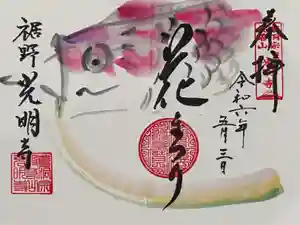 奉拝
令和六年
五月三日
花まつり
裾野光明寺